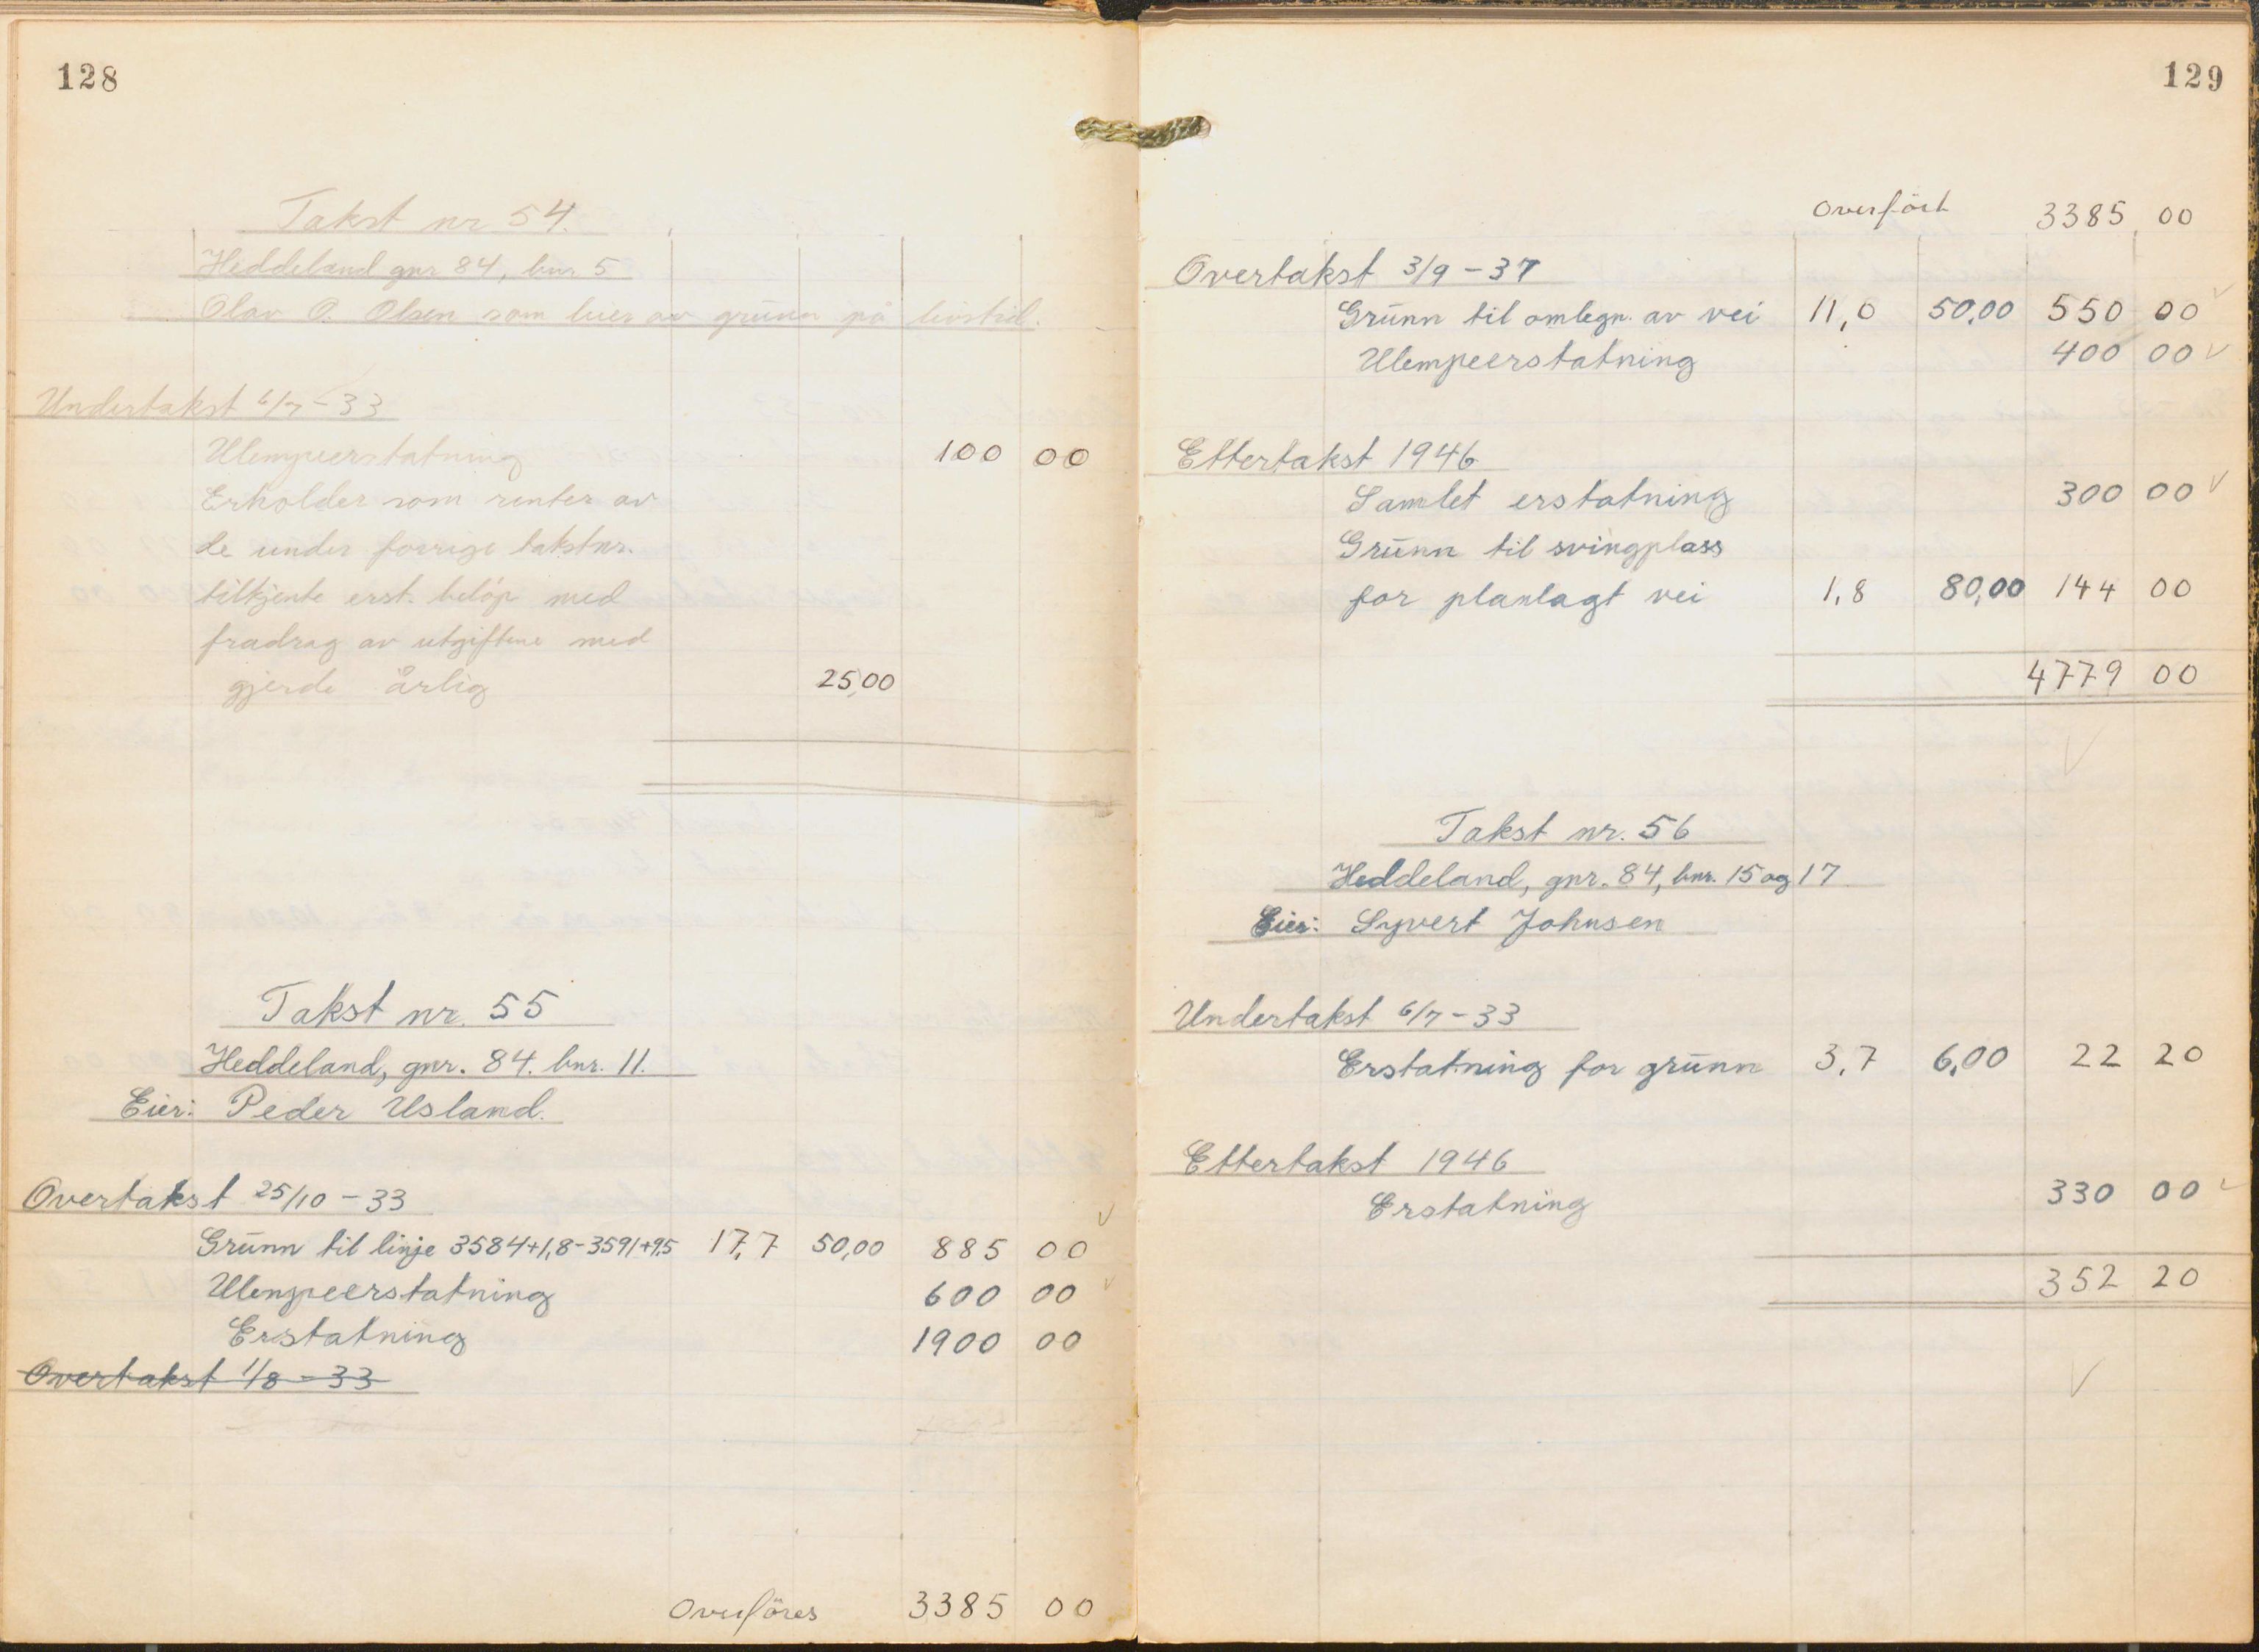 128
Takst nr 54.
Heddeland gnr 84, bnr 5
Olav O. Olsen som leier av grunn på livstid.
Undertakst 6/7-33
Ulempeerstatning 100 00
Erholder som renter av
de under forrige takstnr.
tilkjente erst. beløp med
fradrag av utgiftene med
gjerde årlig 25,00
Takst nr. 55
Heddeland, gnr. 84. bnr. 11.
Eier: Peder Usland.
Overtakst 25/10-33
Grunn til linje 3584+1,8-3591+9,5 17,7 50,00 885 00
Ulempeerstatning 600 00
Erstatning 1900 00
Overtakst 1/8-33
Overföres 3385 00
129
Overfört 3385 00
Overtakst 3/9-37
Grunn til omlegn. av vei 11,0 50,00 550 00
Ulempeerstatning 400 00
Ettertakst 1946
Samlet erstatning 300 00
Grunn til svingplass
for planlagt vei 1,8 80,00 144 00
4779 00
Takst nr. 56
Heddeland, gnr. 84, bnr. 15 og 17
Eier: Syvert Johnsen
Undertakst 6/7-33
Erstatning for grunn 3,7 6,00 22 20
Ettertakst 1946
Erstatning 330 00
352 20